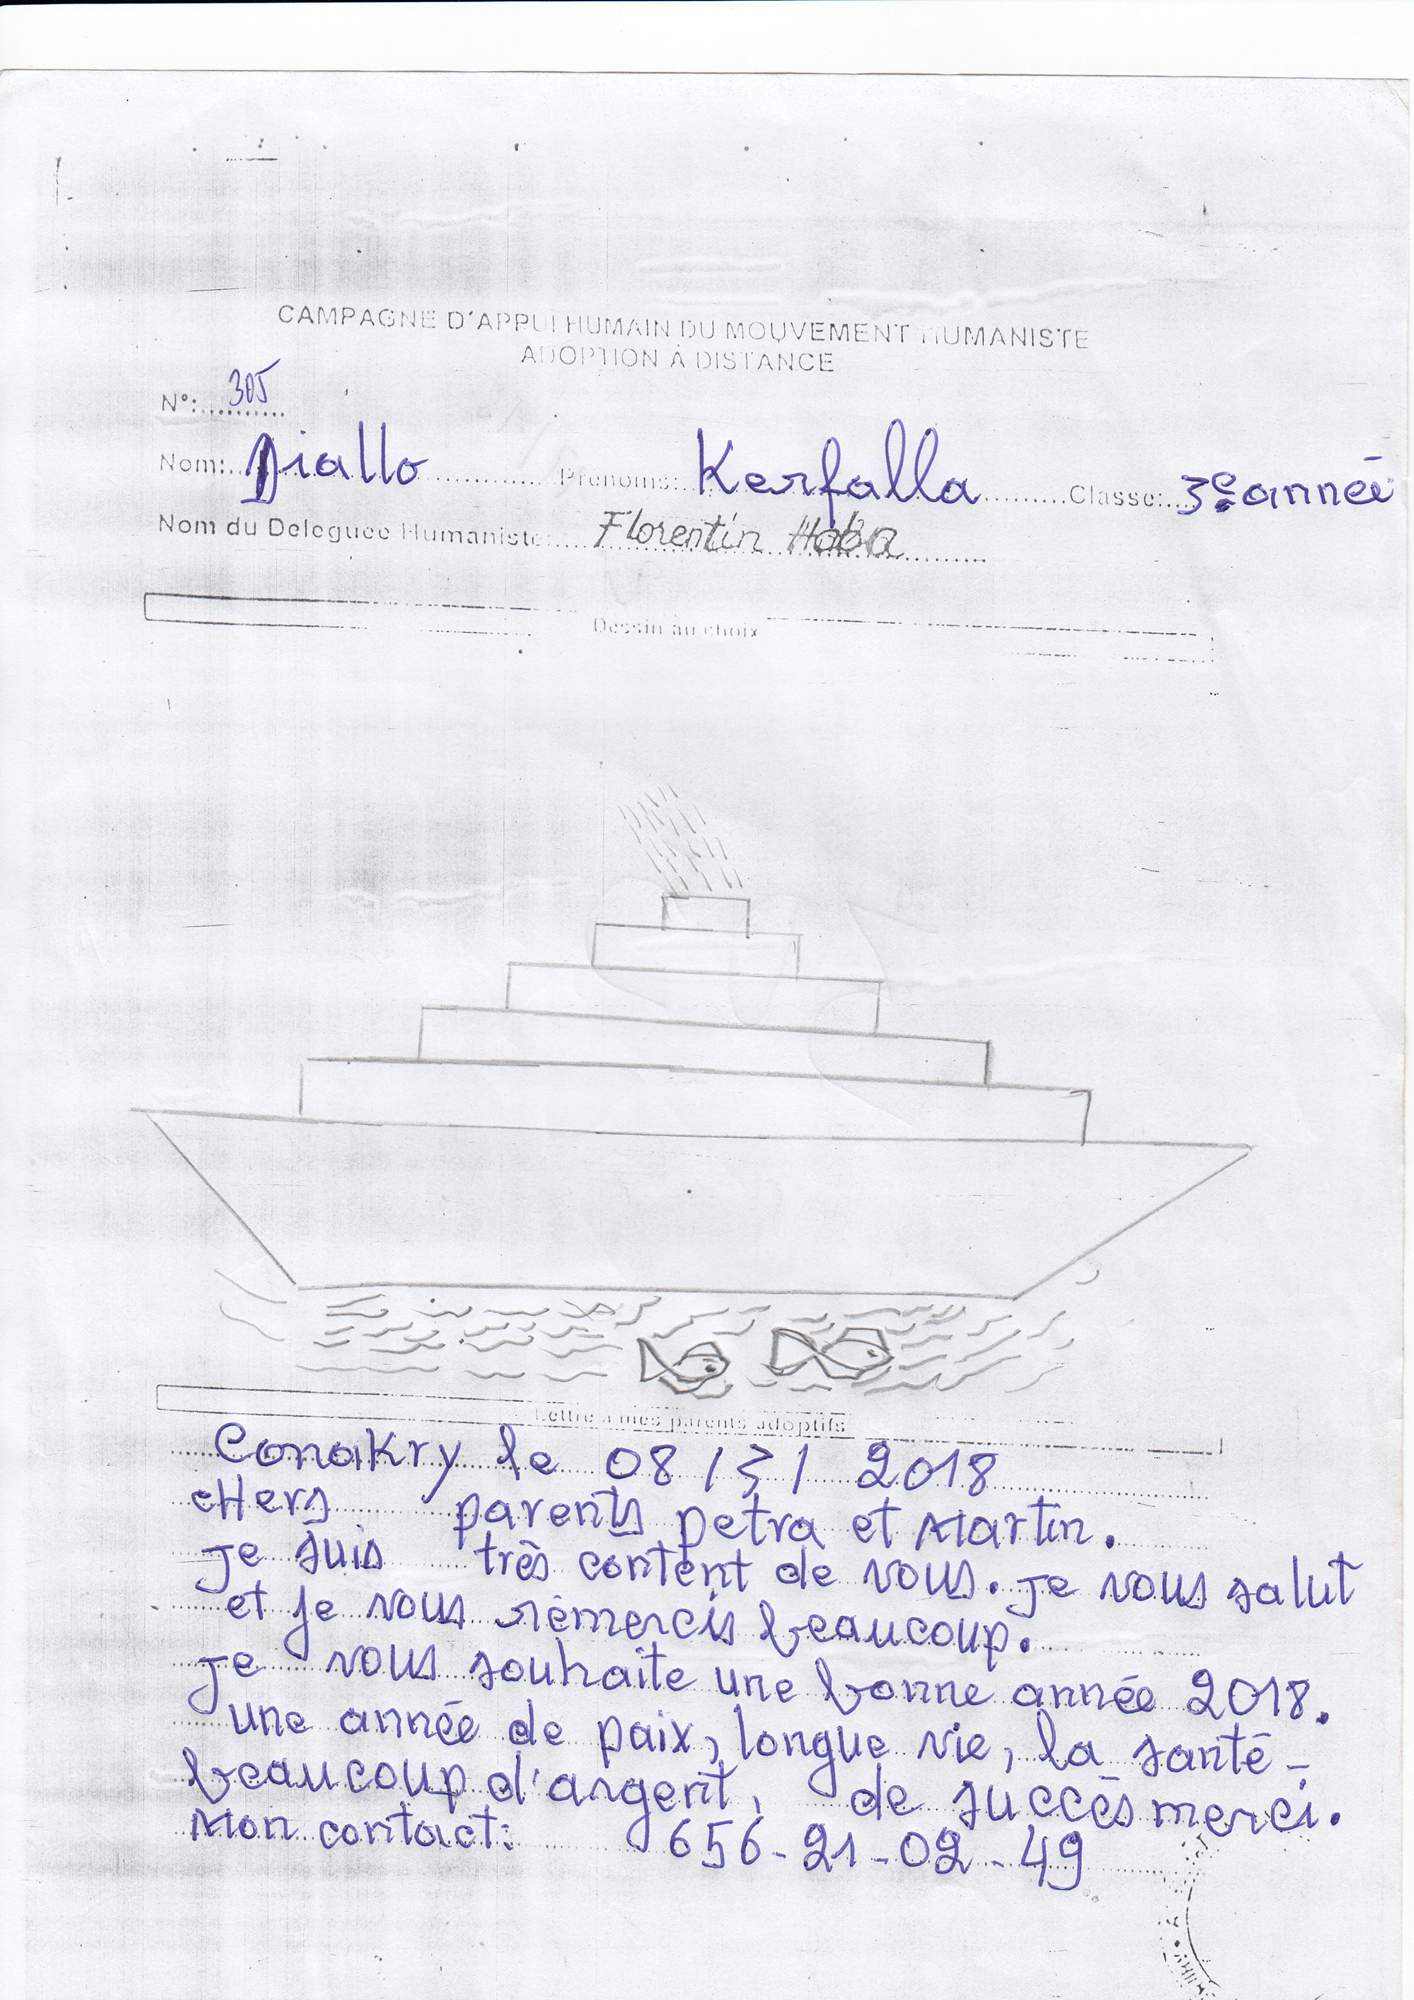 CAMPAGNE D'APPUI HUMAIN DU MOUVEMENT HUMANISTE
ADOPTION À DISTANCE
N°: 305
Nom: Diallo Prénoms: Kerfalla Classe: 3e année
Nom du Déléguée Humaniste: Florentin Haba
Dessin au choix
Lettre à mes parents adoptifs
Conakry le 08/3/2018
cHers parents petra et Martin.
je suis très content de vous. je vous salut
et je vous rémercis beaucoup.
je vous souhaite une bonne année 2018.
une année de paix, longue vie, la santé -
beaucoup d'argent, de succès merci.
Mon contact: 656-21-02-49